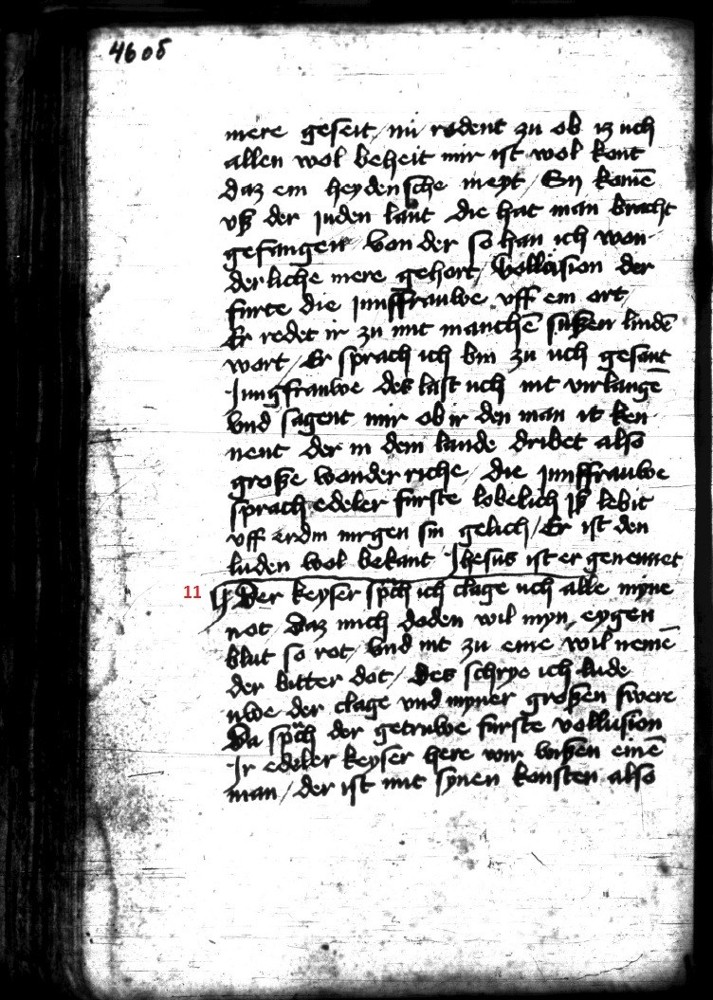 460v
mere geseit / nu redent zu ob iz uch
allen wol beheit mir ist wol kont
daz ein heydensche meyt / Sij komē
vß der juden lant die hat man bracht
gefangen / Von der so han ich won
derliche mere gehort / Vollusion der
furte die junffrauwe vff ein ort /
Er redet ir zu mit manchē sußen lindē
wort / Er sprach ich bin zu uch gesant
Jungfrauwe des last uch nit virlangē
Vnd sagent mir ob ir den man it ken
nent der in dem lande dribet also
große wonder riche / die junffrauwe
sprach edeler furste lobelich Iß lebit
vff erdin nirgen sin gelich / Er ist den
luden wol bekant Jhesus ist er genennet
11 Der keyser spch ich clage uch alle myne
not Daz mich doden wil myn eygen
blut so rot / Vnd nit zu eme wil nemē
der bitter dot / Des schrye ich lude
uwe der clage vnd myner großen swere
Da spch der getruwe furste vollusion
Ir edeler keyser here wir wißen einē
man / der ist mit synen konsten also